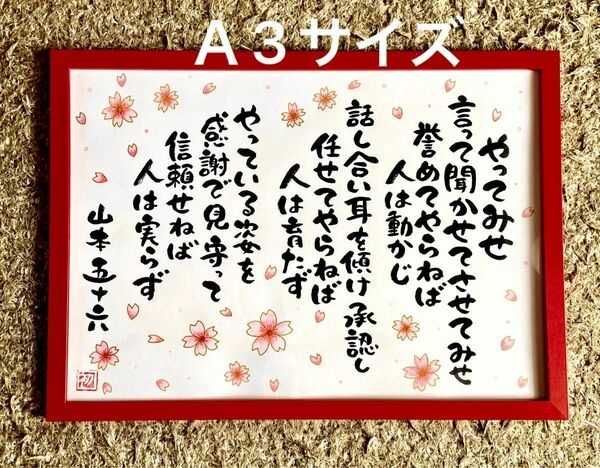 A3サイズ
やってみせ
言って聞かせてさせてみせ
誉めてやらねば
人は動かじ
話し合い耳を傾け承認し
任せてやらねば
人は育たず
やっている姿を
感謝で見守って
信頼せねば
人は実らず
山本五十六
初